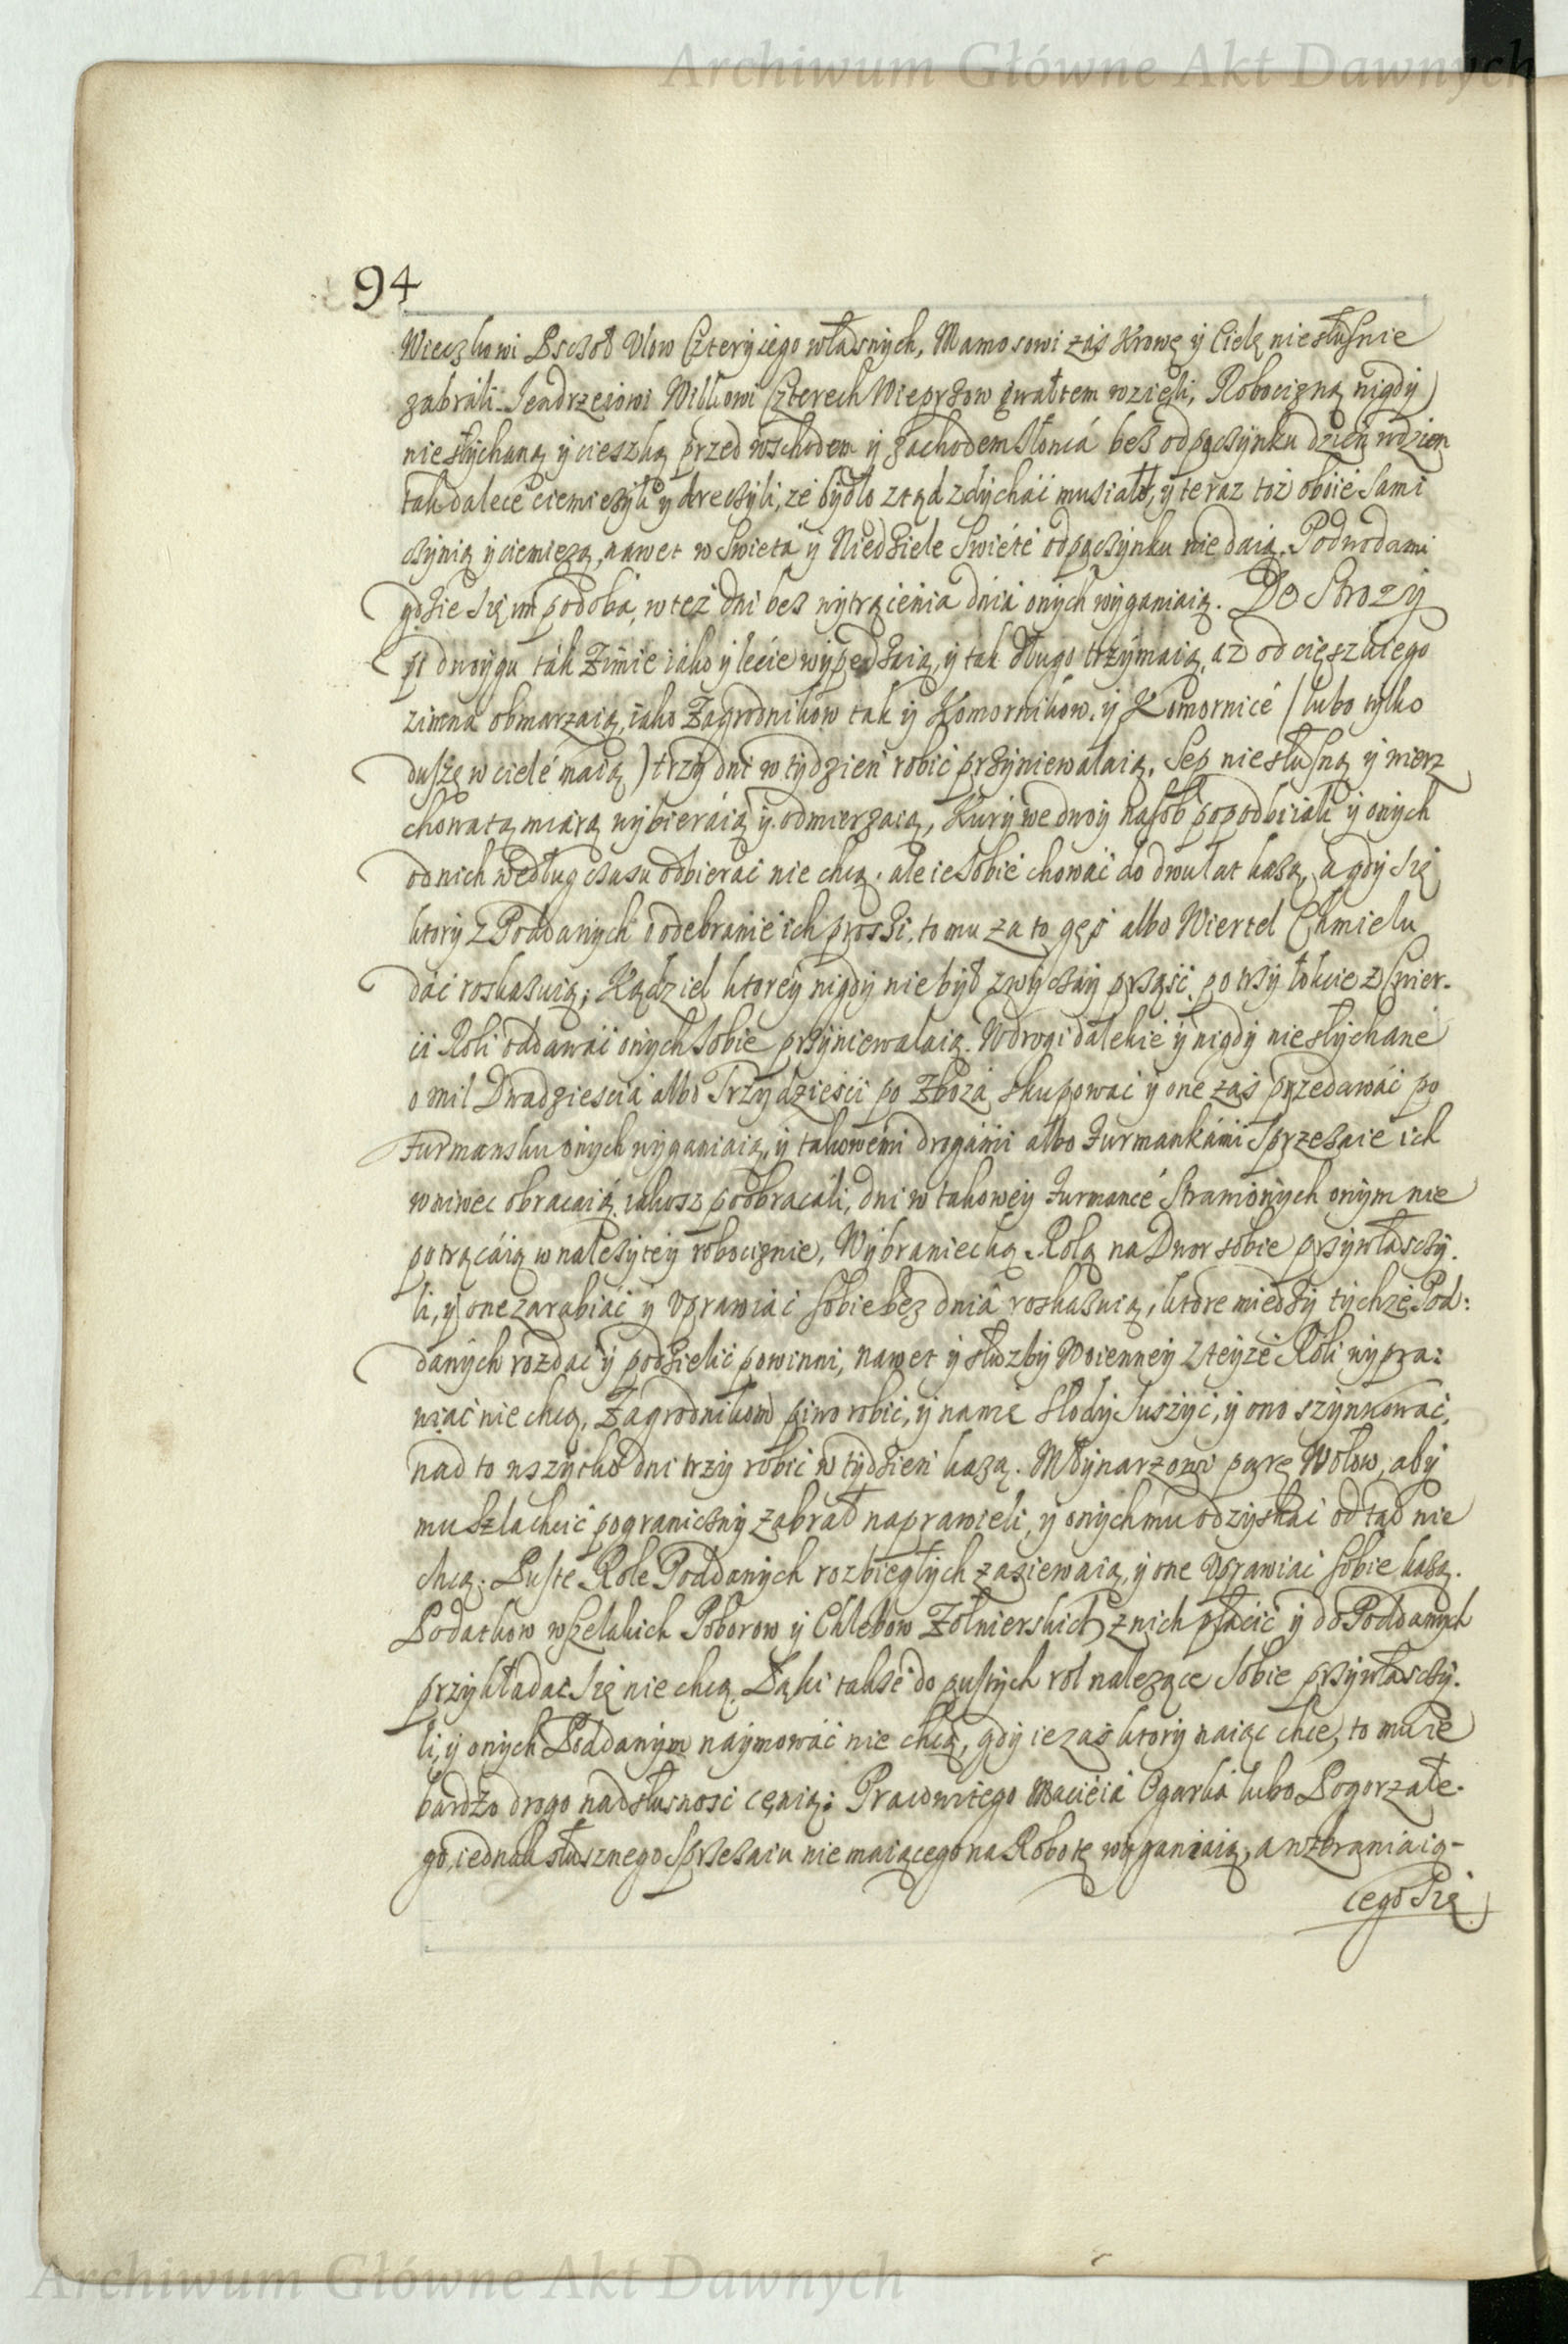 Archiwum Główne Akt Dawnych
94
Wieczkowi Pszoł Ulow Cztery iego własnych, Mamosowi zaś Krowę y Cielę niesłusznie
zabrali. Jendrzeiowi Wilkowi Czterech Wieprzow gwałtem wzięli, Robociznę nigdy
niesłychaną y cieszką przed wschodem y zachodem słonca bez odpoczynku dzien wdzien
tak dalece ciemiężyli y dreczyli, że bydło ztąd zdychać musiało, y teraz toż oboie sami
czynią y ciemiężą, nawet w Swięta y Niedziele Swięté odpoczynku nie daią. Podwodami
gdzie się im podoba, w też dni bez wytrącenia dnia onych wyganiaią. Do Stroży
po dwoygu ták Zimie iáko y lecie wypędzaią, y tak długo trzymaią, aż od cięszkiego
zimna obmarzaią, iako Zagrodnikow tak y Komornikow, y Komornicé / lubo tylko
duszę w cielé maią) trzy dni w tydzien robić przyniewalaią. Sep niesłuszną y wierz
chowatą miárą wybieráią y odmierzaią, Kury we dwoy nasob popodbiiali y onych
od nich według czasu odbierać nie chcą. ale ie sobie chować do dwu lat każą, a gdy się
ktory z Poddanych o odebranie ich prosi, to mu za to gęś albo Wiertel Chmielu
dáć roskazuią; Kądziel ktorey nigdy nie był zwyczay prząść po trzy łokcie z Cwier-
ci Roli oddawać onych sobie przyniewalaią. W drogi dalekie y nigdy niesłychane
o mil Dwadziescia albo Trzydzieści po Zboża skupować y one zaś przedawáć po
Furmansku onych wyganiaią, y takowemi drogámi albo Furmankámi Sprzężaie ich
wniwec obracaią, iakosz poobracali, dni w takowey Furmancé strawionych onym nie
potrącáią w należytey robociznie, Wybraniecką Rolą na Dwor sobie przywłaszczy-
li, y one zarabiać y vprawiać sobie bez dniá roskazuią, ktore miedzy tychże Pod:
danych rozdać y podzielić powinni, nawet y służby Woienney z teyże Roli wypra:
wiać nie chcą, Zagrodnikom piwo robić, y na nie słody suszyć, y ono szynkować,
nad to wszytko dni trzy robić w tydzień każą. Młynarzowi parę Wołow, aby
mu Szlachcic pograniczny zabrał naprawieli, y onych mu odzyskać od tąd nie
chcą. Puste Role Poddanych rozbiegłych zasiewaią, y one vprawiać sobie każą.
Podatkow wszelakich Poborow y Chlebow Żołnierskich z nich płacić y do Poddanych
przykładać się nie chcą. Łąki także do pustych rol należące sobie przywłaszczy-
li, y onych Poddanym náymowáć nie chcą, gdy ie zaś ktory naiąć chce, to mu ie
bardzo drogo nad słuszność cęnią; Pracowitego Macieia Ogarka lubo Pogorzałe-
go, iednak słusznego Sprzężaiu nie maiącego na Robotę wyganiaią, a wzbraniaią-
cego się
Archiwum Główne Akt Dawnych